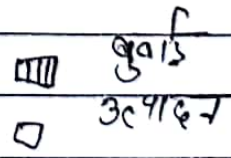 बुवाई
उत्पादन